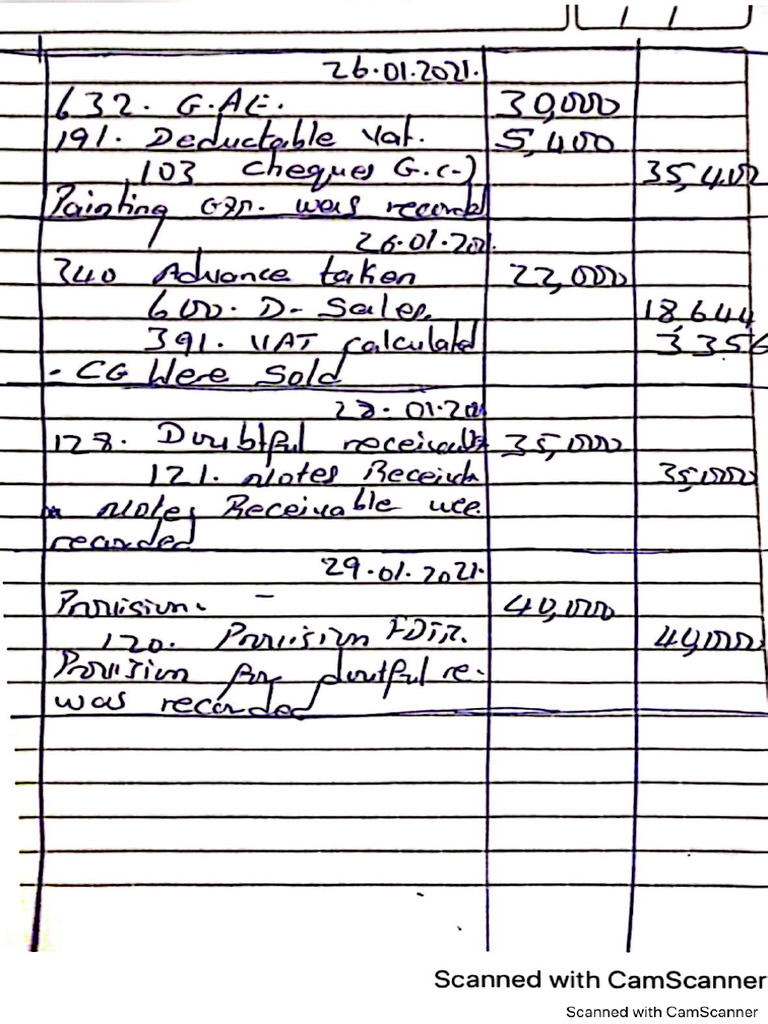 26.01.2021.
632. G.AE. 30,000
191. Deductable Vat. 5,400
103 cheques G.(-) 35,400
Painting exp. was record
26.01.202.
340 Advance taken 22,000
600. D- Sales. 18,644
391. VAT calculated 3,356
- CG Were Sold
28.01.20
128. Doubtful receivable 35,000
121. Notes Receivab 35,000
Notes Receivable wee
recorded
29.01.2021.
Provision. - 40,000
120. Provision FDTR. 40,000
Provision for doutful re.
was recorded
Scanned with CamScanner
Scanned with CamScanner